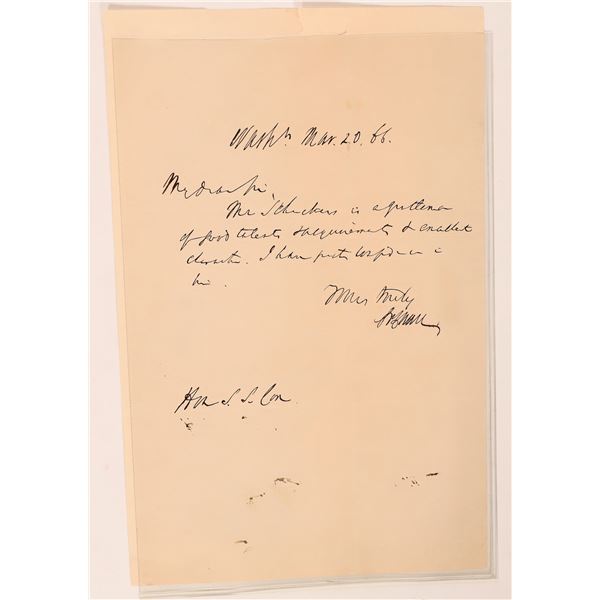 Washn. Mar. 20. 66.
My dear Sir,
Mr Schuckers is a gentleman
of good talents & acquirements & excellent
character. I have great confidence in
him.
Yours truly
Hon S. S. Cox